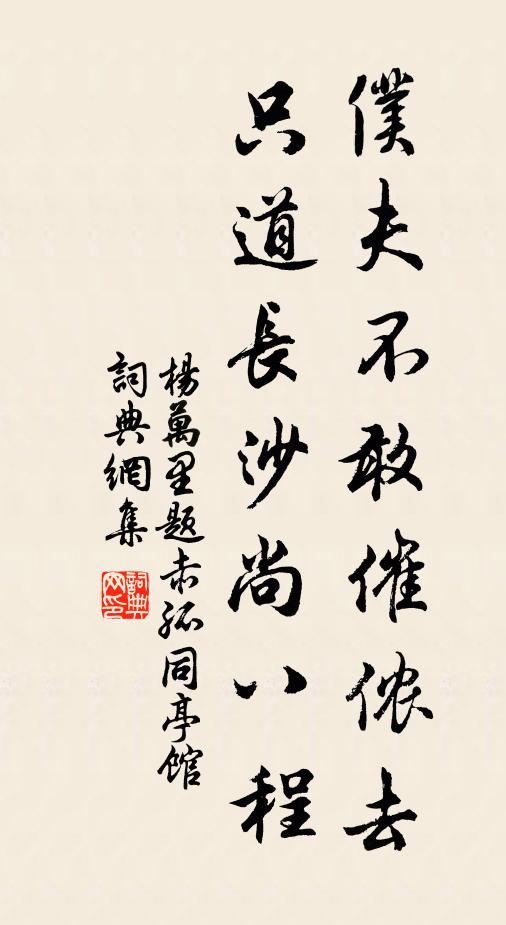 僕夫不敢催侬去
只道長沙尚八程
楊萬里题赤孤同亭館
詞典網集
詞典網印